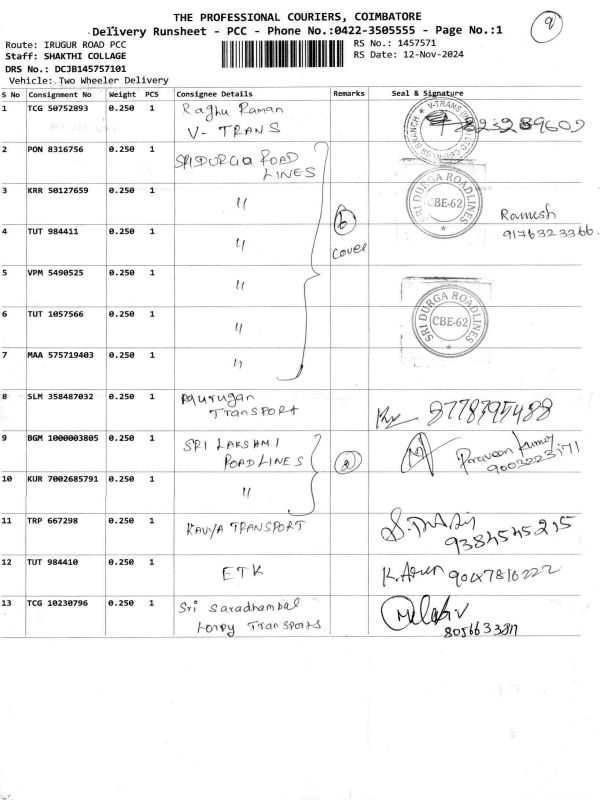 THE PROFESSIONAL COURIERS, COIMBATORE
9
Delivery Runsheet - PCC - Phone No.:0422-3505555 - Page No.:1
Route: IRUGUR ROAD PCC
RS No.: 1457571
Staff: SHAKTHI COLLAGE
RS Date: 12-Nov-2024
DRS No.: DCJB145757101
Vehicle: Two Wheeler Delivery
S No Consignment No Weight PCS Consignee Details Remarks Seal & Signature
1 TCG 50752893 0.250 1 Raghu Raman
V- TRANS
V-TRANS
BRANCH
2 PON 8316756 0.250 1 SRI DURGA ROAD
LINES
3 KRR 50127659 0.250 1 "
6
cover
SRI DURGA ROADLINES
CBE-62
Ramesh
9176323366
4 TUT 984411 0.250 1 "
5 VPM 5490525 0.250 1 "
6 TUT 1057566 0.250 1 "
SRI DURGA ROADLINES
CBE-62
7 MAA 575719403 0.250 1 "
8 SLM 358487032 0.250 1 Murugan
Transport
8778795488
9 BGM 1000003805 0.250 1 SRI LAKSHMI
ROADLINES
2
Praveen Kumar
9003223171
10 KUR 7002685791 0.250 1 "
11 TRP 667298 0.250 1 KAVYA TRANSPORT
9384545215
12 TUT 984410 0.250 1 ETK
K. Arun 9047816222
13 TCG 10230796 0.250 1 Sri Saradhambal
Lorry Transports